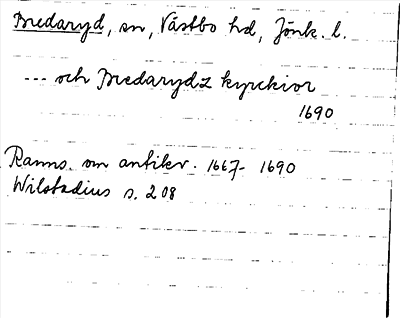 Bredaryd, sn, Västbo hd, Jönk. l.
... och Bredarydz kyrckior
1690
Ranns. om antikv. 1667- 1690
Wilstadius s. 208